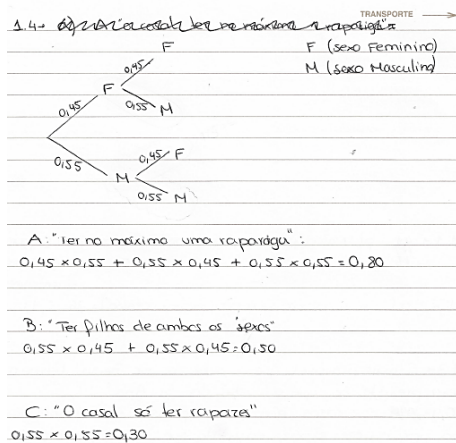 TRANSPORTE
1.4-
F (sexo Feminino)
M (sexo Masculino)
F
0,45
F
0,45
0,55 M
0,55
0,45 F
M
0,55 M
A: "Ter no máximo uma rapariga":
0,45 x 0,55 + 0,55 x 0,45 + 0,55 x 0,55 = 0,80
B: "Ter filhos de ambos os sexos"
0,55 x 0,45 + 0,55 x 0,45 = 0,50
C: "O casal só ter rapazes"
0,55 x 0,55 = 0,30